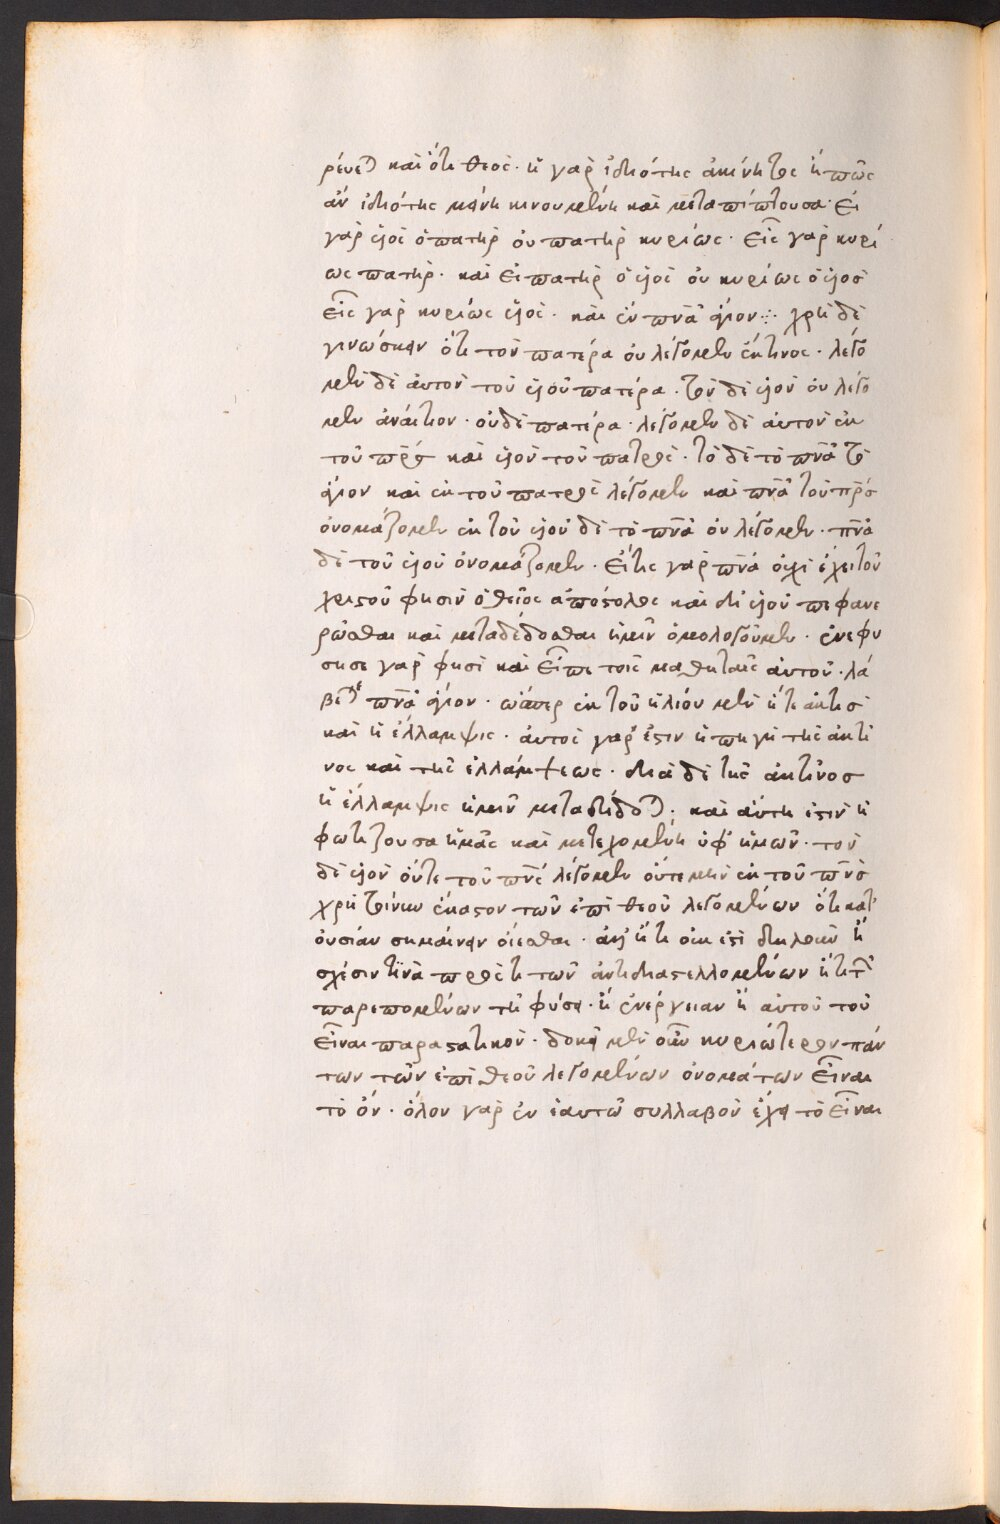 ρεύε) καὶ ὅτι θεός· ἡ γὰρ ἰδιότης ἀκίνητος ἢ πῶς
ἂν ἰδιότης μένῃ κινουμένη καὶ μεταπίπτουσα· Εἰ
γὰρ υἱὸς ὁ πατὴρ οὐ πατὴρ κυρίως· Εἷς γὰρ κυρί
ως πατήρ· καὶ εἰ πατὴρ ὁ υἱὸς οὐ κυρίως ὁ υἱὸσ
Εἷς γὰρ κυρίως υἱός· καὶ ἓν πνᾶ ἅγιον ⁘ χρὴ δὲ
γινώσκειν ὅτι τὸν πατέρα οὐ λέγομεν ἔκ τινος· λέγο
μεν δὲ αὐτὸν τοῦ υἱοῦ πατέρα· τὸν δὲ υἱὸν οὐ λέγο
μεν ἀναίτιον· οὐδὲ πατέρα· λέγομεν δὲ αὐτὸν ἐκ
τοῦ πρς καὶ υἱὸν τοῦ πατρός· τὸ δὲ τὸ πνᾶ τὸ
ἅγιον καὶ ἐκ τοῦ πατρὸς λέγομεν καὶ πνᾶ τοῦ πρς
ὀνομάζομεν ἐκ τοῦ υἱοῦ δὲ τὸ πνᾶ οὐ λέγομεν· πνᾶ
δὲ τοῦ υἱοῦ ὀνομάζομεν· Εἴ τις γὰρ πνᾶ οὐχὶ ἔχει τοῦ
χριστοῦ φησιν ὁ θεῖος ἀπόστολος καὶ δι' υἱοῦ πεφανε
ρῶσθαι καὶ μεταδέδοσθαι ἡμῖν ὁμολογοῦμεν· ἐνεφύ
σησε γὰρ φησὶ καὶ Εἶπε τοῖς μαθηταῖς αὐτοῦ· λά
βετε πνᾶ ἅγιον· ὥσπερ ἐκ τοῦ ἡλίου μὲν ἥ τε ἀκτὶσ
καὶ ἡ ἔλλαμψις· αὐτὸς γάρ ἐστιν ἡ πηγὴ τῆς ἀκτῖ
νος καὶ τῆς ἐλλάμψεως· διὰ δὲ τῆς ἀκτῖνοσ
ἡ ἔλλαμψις ἡμῖν μεταδίδο)· καὶ αὕτη ἐστὶν ἡ
φωτίζουσα ἡμᾶς καὶ μετεχομένη ὑφ' ἡμῶν· τὸν
δὲ υἱὸν οὔτε τοῦ πνς λέγομεν οὔτε μὴν ἐκ τοῦ πνς
χρὴ τοίνυν ἕκαστον τῶν ἐπὶ θεοῦ λεγομένων ὅτι κατ'
οὐσίαν σημαίνειν οἴεσθαι· ἀλλ' ἢ τι οὐκ ἐστὶ δηλοῦν ἢ
σχέσιν τινὰ πρὸς τι τῶν ἀντιδιαστελλομένων ἤ τι τ̑
παρεπομένων τῇ φύσει· ἢ ἐνέργειαν ἢ αὐτοῦ τοῦ
Εἶναι παραστατικόν· δοκεῖ μὲν οὖν κυριώτερον πάν
των τῶν ἐπὶ θεοῦ λεγομένων ὀνομάτων εἶναι
τὸ ὄν· ὅλον γὰρ ἐν ἑαυτῷ συλλαβὸν ἔχει τὸ Εἶναι